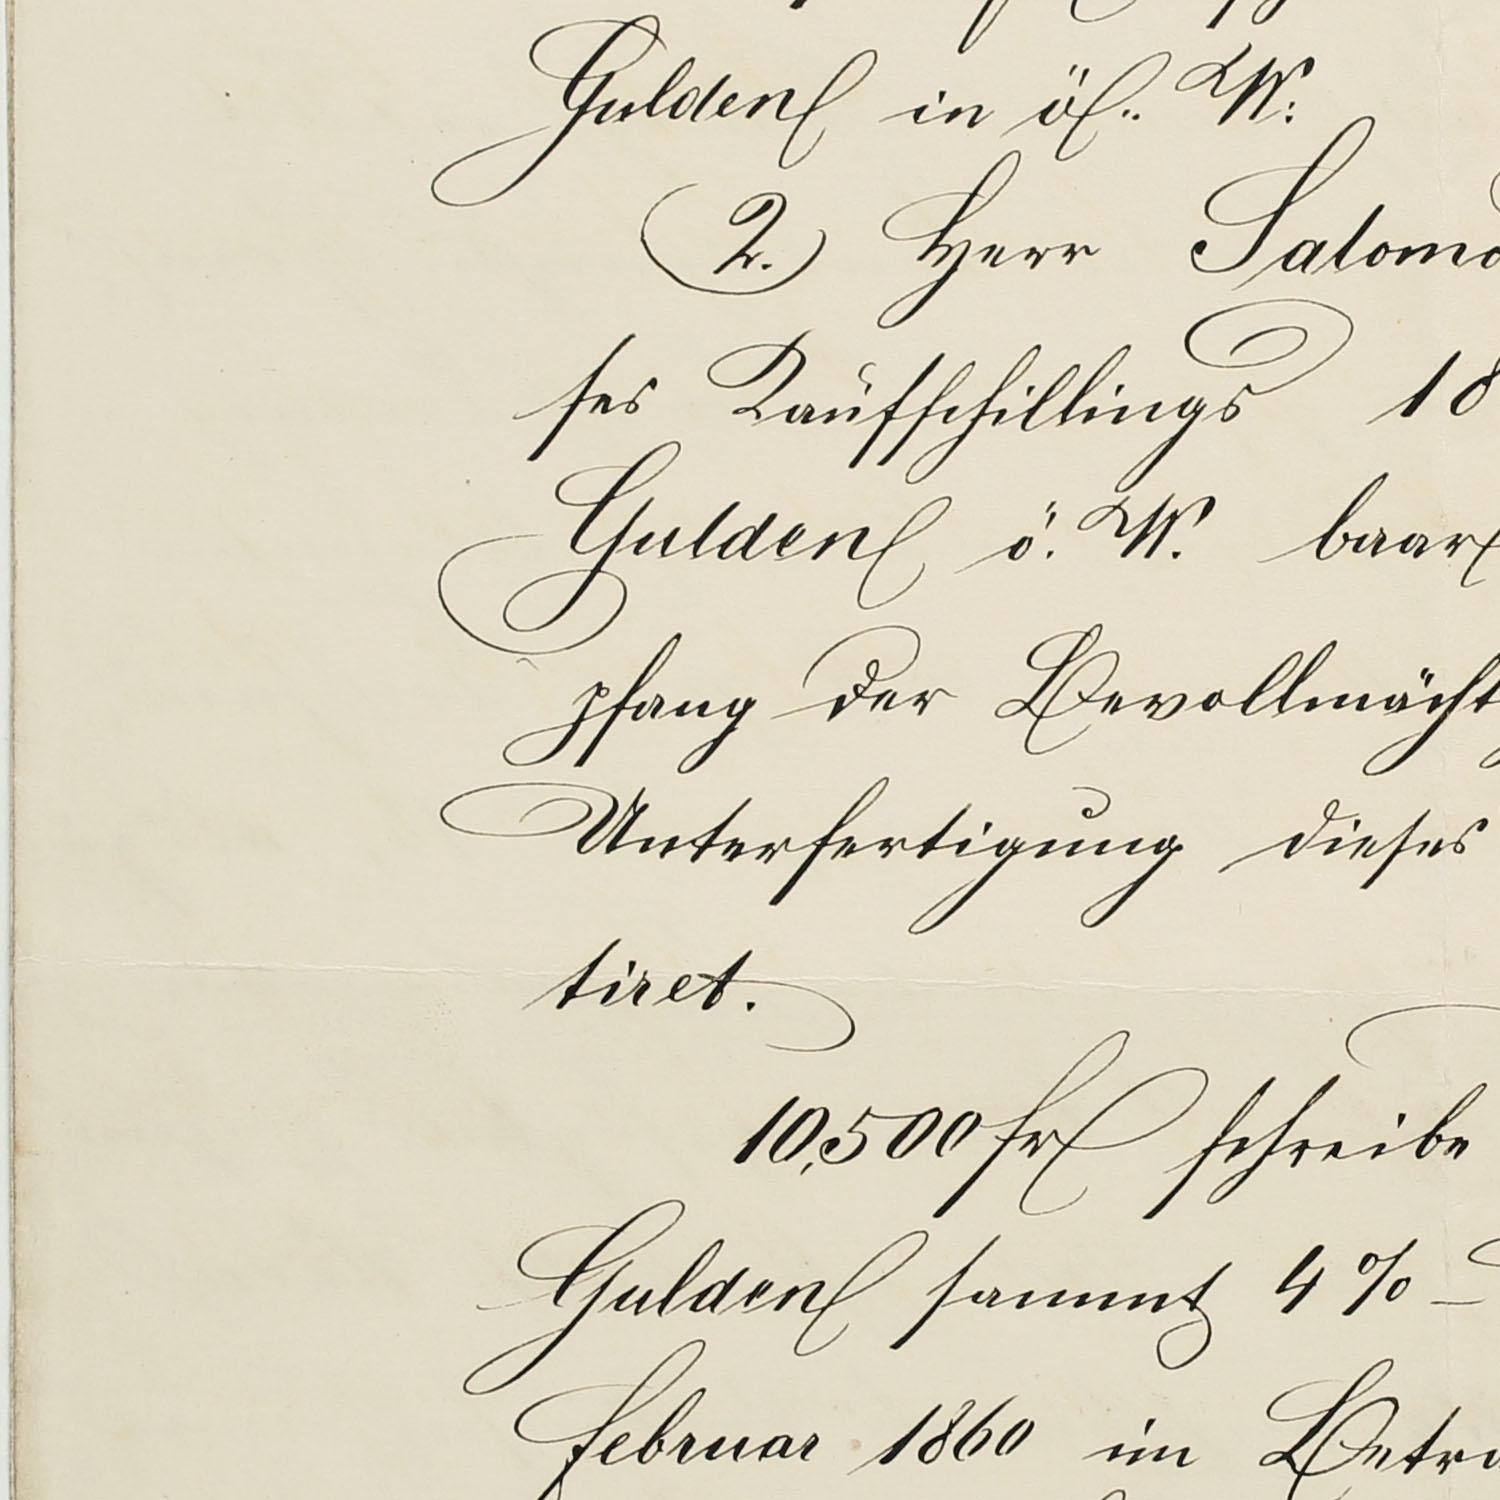 Gulden in ö. W.
2.) Herr Salomo
ses Kaufschillings 18
Gulden ö. W. baar
pfang der Bevollmächt
Unterfertigung dieses
tiret.
10,500 fr schreibe
Gulden sammt 4 % –
Februar 1860 im Betra